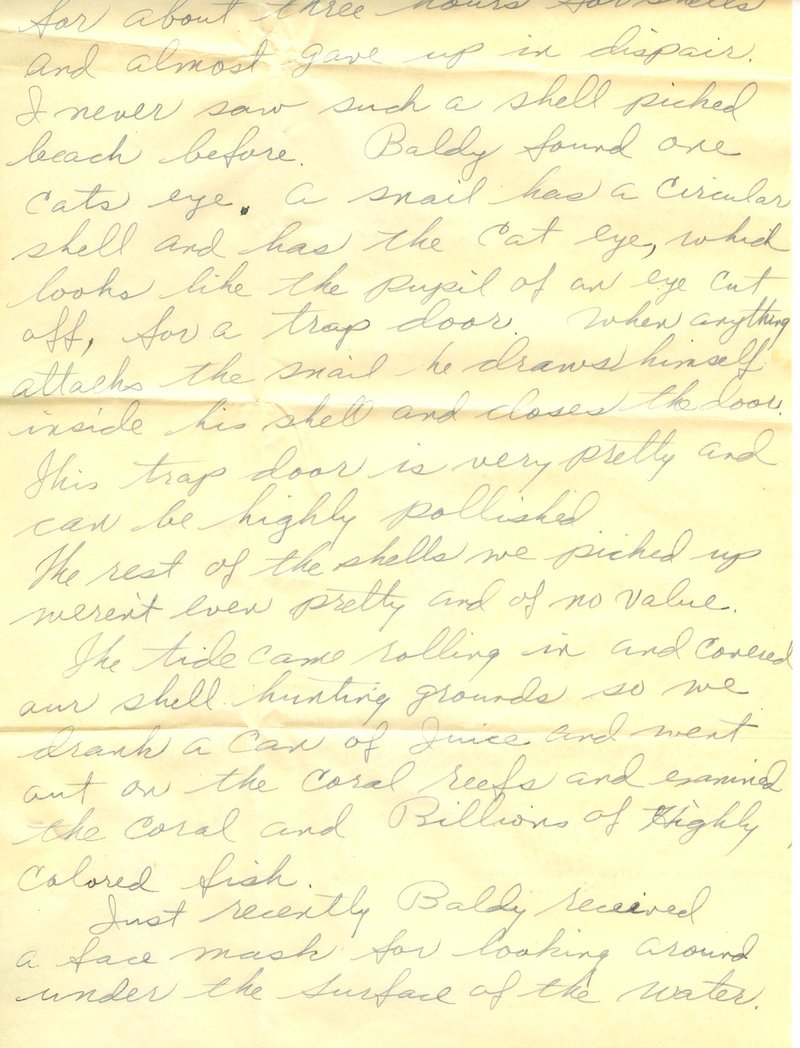 for about three hours for shells
and almost gave up in dispair.
I never saw such a shell picked
beach before. Baldy found one
cats eye. A snail has a circular
shell and has the cat eye, which
looks like the pupil of an eye cut
off, for a trap door. When anything
attacks the snail he draws himself
inside his shell and closes the door.
This trap door is very pretty and
can be highly pollished
The rest of the shells we picked up
weren't even pretty and of no value.
The tide came rolling in and covered
our shell hunting grounds so we
drank a can of Juice and went
out on the coral reefs and examined
the coral and Billions of Highly
colored fish.
Just recently Baldy received
a face mask for looking around
under the surface of the water.